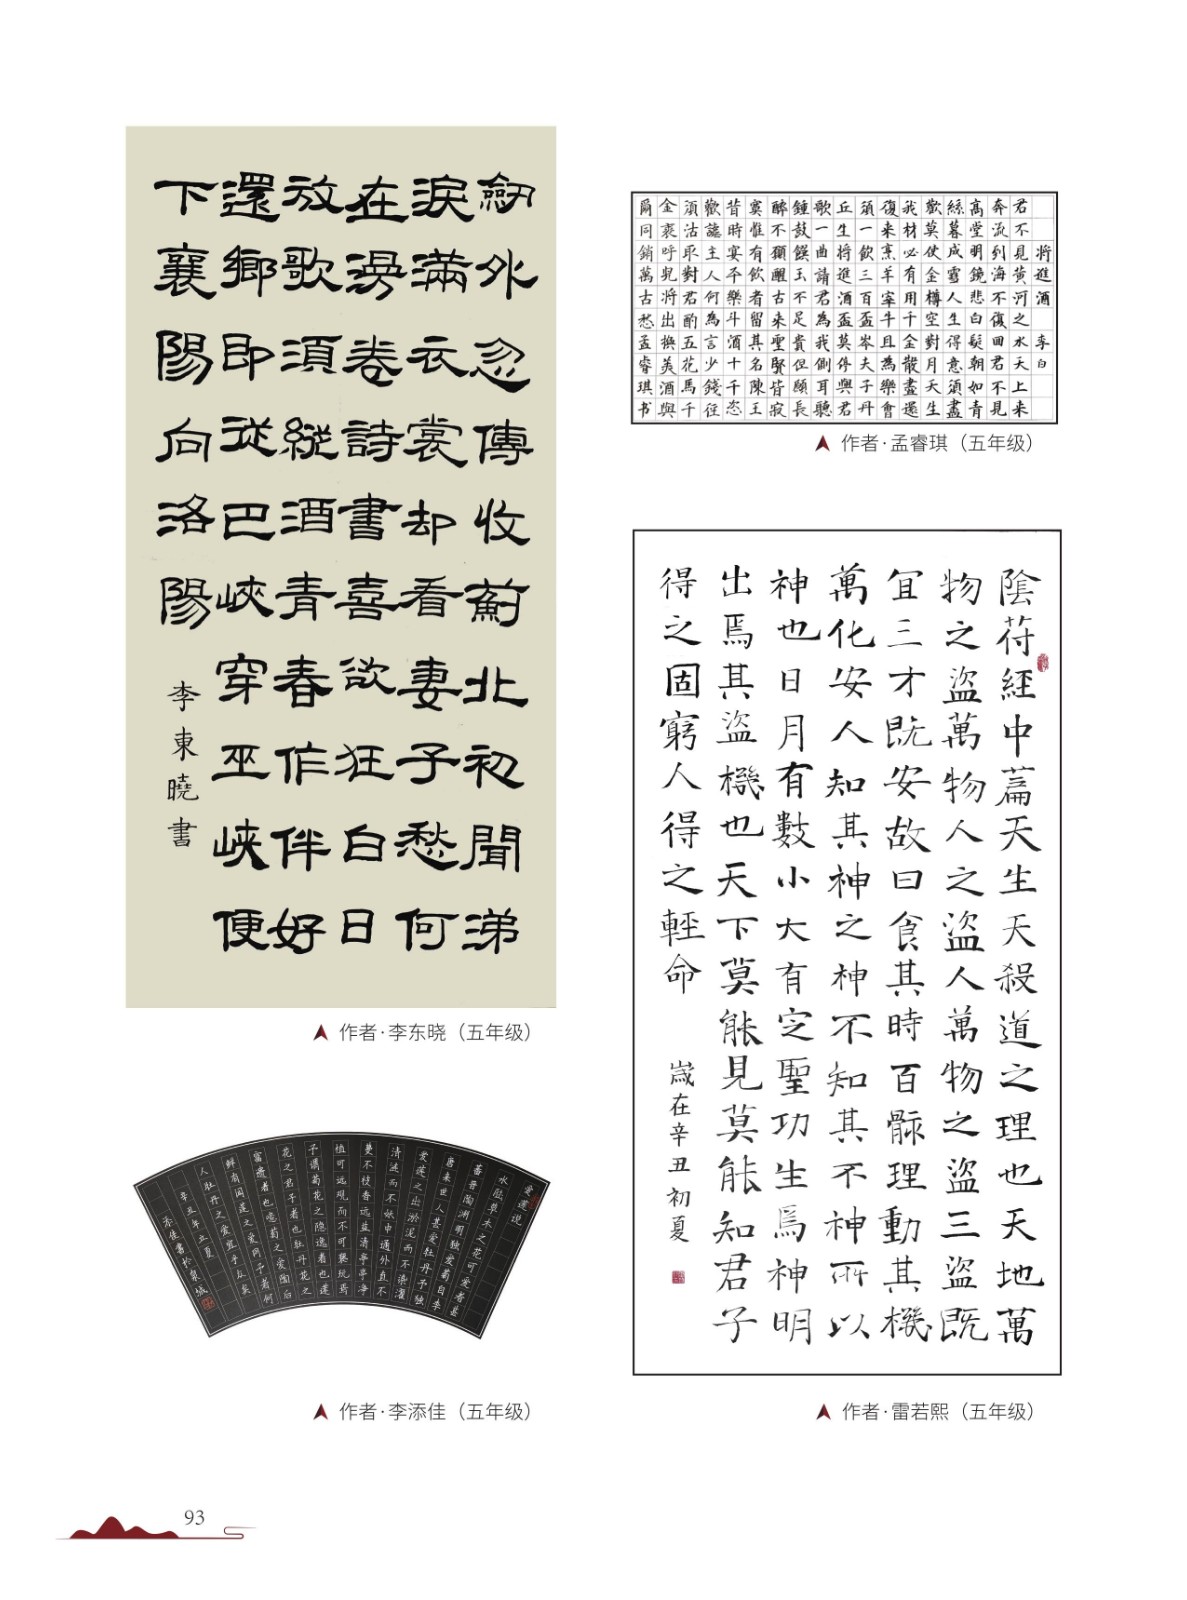 劒外忽傳收薊北初聞涕
淚滿衣裳却看妻子愁何
在漫卷詩書喜欲狂白日
放歌須縱酒青春作伴好
還鄉即從巴峽穿巫峽便
下襄陽向洛陽
李東曉書
作者·李东晓（五年级）
將進酒 李白
君不見黃河之水天上来
奔流到海不復回君不見
高堂明鏡悲白髮朝如青
絲暮成雪人生得意須盡
歡莫使金樽空對月天生
我材必有用千金散盡還
復来烹羊宰牛且為樂會
須一飲三百盃岑夫子丹
丘生將進酒盃莫停與君
歌一曲請君為我側耳聽
鍾鼓饌玉不足貴但願長
醉不願醒古来聖賢皆寂
寞惟有飲者留其名陳王
昔時宴平樂斗酒十千恣
歡謔主人何為言少錢徑
須沽取對君酌五花馬千
金裘呼兒將出換美酒與
爾同銷萬古愁孟睿琪书
作者·孟睿琪（五年级）
愛蓮説
水陸草木之花可爱者甚
蕃晋陶渊明独爱菊自李
唐来世人甚爱牡丹予独
爱莲之出淤泥而不染濯
清涟而不妖中通外直不
蔓不枝香远益清亭亭净
植可远观而不可亵玩焉
予谓菊花之隐逸者也莲
花之君子者也牡丹花之
富贵者也噫菊之爱陶后
鲜有闻莲之爱同予者何
人牡丹之爱宜乎众矣
辛丑年立夏
添佳書於泉城
作者·李添佳（五年级）
陰符經中篇天生天殺道之理也天地萬
物之盜萬物人之盜人萬物之盜三盜既
宜三才既安故曰食其時百骸理動其機
萬化安人知其神之神不知其不神所以
神也日月有數小大有定聖功生焉神明
出焉其盜機也天下莫能見莫能知君子
得之固窮人得之輕命
歲在辛丑初夏
作者·雷若熙（五年级）
93